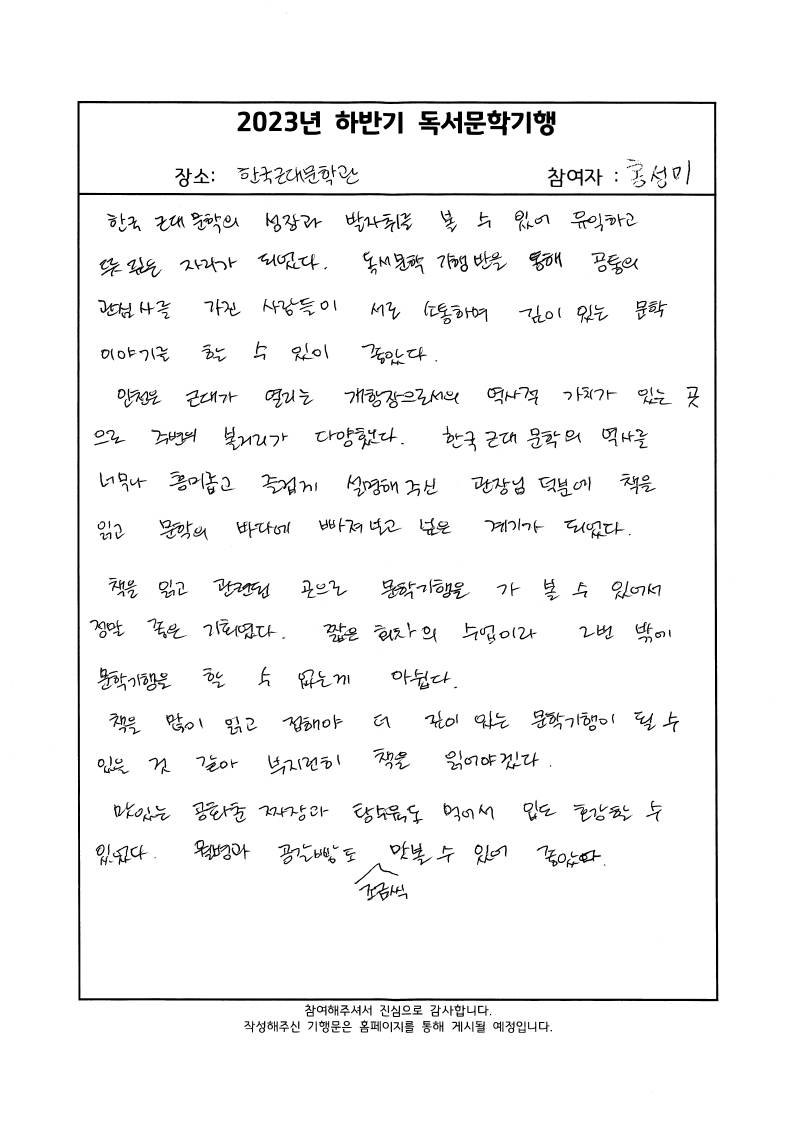 2023년 하반기 독서문학기행
장소: 한국근대문학관 참여자 : 홍성미
한국 근대문학의 성장과 발자취를 볼 수 있어 유익하고
뜻 깊은 자리가 되었다. 독서문학 기행반을 통해 공통의
관심사를 가진 사람들이 서로 소통하며 깊이 있는 문학
이야기를 할 수 있어 좋았다.
인천은 근대가 열리는 개항장으로서의 역사적 가치가 있는 곳
으로 주변의 볼거리가 다양했다. 한국근대문학의 역사를
너무나 흥미롭고 즐겁게 설명해주신 관장님 덕분에 책을
읽고 문학의 바다에 빠져보고 싶은 계기가 되었다.
책을 읽고 관련된 곳으로 문학기행을 가 볼 수 있어서
정말 좋은 기회였다. 짧은 회차의 수업이라 2번 밖에
문학기행을 할 수 없는게 아쉽다.
책을 많이 읽고 접해야 더 깊이 있는 문학기행이 될 수
있을 것 같아 부지런히 책을 읽어야겠다.
맛있는 공화춘 짜장과 탕수육도 먹어서 입도 호강할 수
있었다. 월병과 공갈빵도 맛볼 수 있어 좋았다.
조금씩
참여해주셔서 진심으로 감사합니다.
작성해주신 기행문은 홈페이지를 통해 게시될 예정입니다.